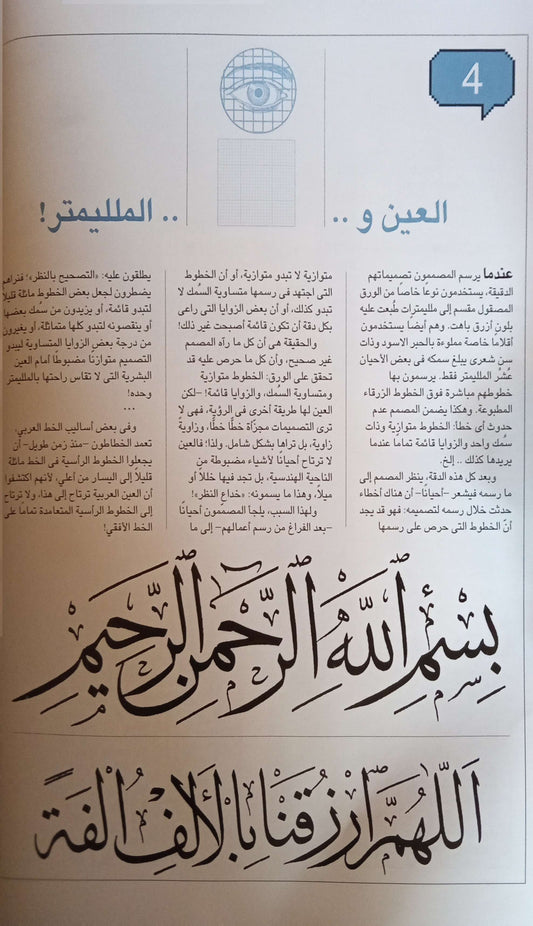 4
العين و .. .. الملليمتر!
عندما يرسم المصممون تصميماتهم
الدقيقة، يستخدمون نوعًا خاصًا من الورق
المصقول مقسم إلى ملليمترات طُبعت عليه
بلون أزرق باهت. وهم أيضًا يستخدمون
أقلامًا خاصة مملوءة بالحبر الاسود وذات
سن شعرى يبلغ سمكه فى بعض الأحيان
عُشْر الملليمتر فقط. يرسمون بها
خطوطهم مباشرة فوق الخطوط الزرقاء
المطبوعة. وهكذا يضمن المصمم عدم
حدوث أى خطأ: الخطوط متوازية وذات
سُمك واحد والزوايا قائمة تماما عندما
يريدها كذلك .. إلخ.
وبعد كل هذه الدقة، ينظر المصمم إلى
ما رسمه فيشعر -أحيانًا- أن هناك أخطاء
حدثت خلال رسمه لتصميمه: فهو قد يجد
أنّ الخطوط التى حرص على رسمها
متوازية لا تبدو متوازية، أو أن الخطوط
التى اجتهد فى رسمها متساوية السُمك لا
تبدو كذلك، أو أن بعض الزوايا التى راعى
بكل دقة أن تكون قائمة أصبحت غير ذلك!
والحقيقة هى أن كل ما رآه المصمم
غير صحيح، وأن كل ما حرص عليه قد
تحقق على الورق: الخطوط متوازية
ومتساوية السمك، والزوايا قائمة! -لكن
العين لها طريقة أخرى فى الرؤية، فهى لا
ترى التصميمات مجزّأة خطًا خطًا، وزاوية
زاوية، بل تراها بشكل شامل. ولذا؛ فالعين
لا ترتاح أحيانًا لأشياء مضبوطة من
الناحية الهندسية، بل تجد فيها خللاً أو
ميلاً، وهذا ما يسمونه: «خداع النظر»!
ولهذا السبب، يلجأ المصممون أحيانًا
-بعد الفراغ من رسم أعمالهم- إلى ما
يطلقون عليه: «التصحيح بالنظر»؛ فنراهم
يضطرون لجعل بعض الخطوط مائلة قليلاً
لتبدو قائمة، أو يزيدون من سُمك بعضها
أو ينقصونه لتبدو كلها متماثلة، أو يغيرون
من درجة بعض الزوايا المتساوية ليبدو
التصميم متوازنًا مضبوطًا أمام العين
البشرية التى لا تقاس راحتها بالملليمتر
وحده!
...
وفى بعض أساليب الخط العربي،
تعمد الخطاطون -منذ زمن طويل- أن
يجعلوا الخطوط الرأسية فى الخط مائلة
قليلاً إلى اليسار من أعلي، لأنهم اكتشفوا
أن العين العربية ترتاح إلى هذا، ولا ترتاح
إلى الخطوط الرأسية المتعامدة تماما على
الخط الأفقي!
بِسْمِ ٱللَّهِ ٱلرَّحْمَنِ ٱلرَّحِيمِ
اَللّٰهُمَّ ٱرْزُقْنَا بِالْأَلِفِ الْفَةً